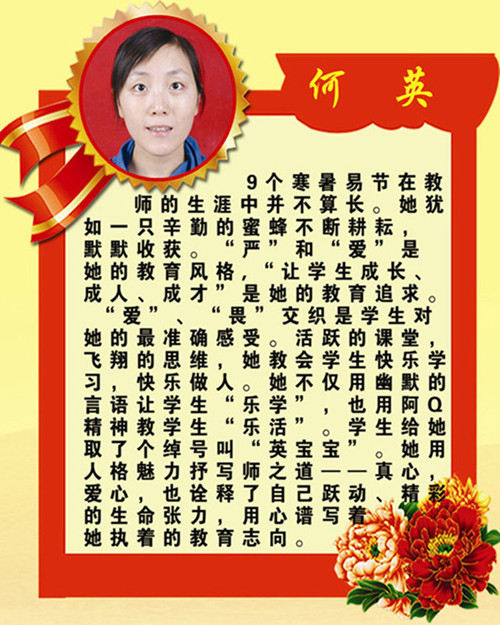 何 英
9个寒暑易节在教
师的生涯中并不算长。她犹
如一只辛勤的蜜蜂不断耕耘,
默默收获。“严”和“爱”是
她的教育风格,“让学生成长、
成人、成才”是她的教育追求。
“爱”、“畏”交织是学生对
她的最准确感受。活跃的课堂,
飞翔的思维,她教会学生快乐学
习,快乐做人。她不仅用幽默的
言语让学生“乐学”,也用阿Q
精神教学生“乐活”。学生给她
取了个绰号叫“英宝宝”。她用
人格魅力抒写师之道——真心,
爱心,也诠释了自己跃动、精彩
的生命张力,用心谱写着
她执着的教育志向。